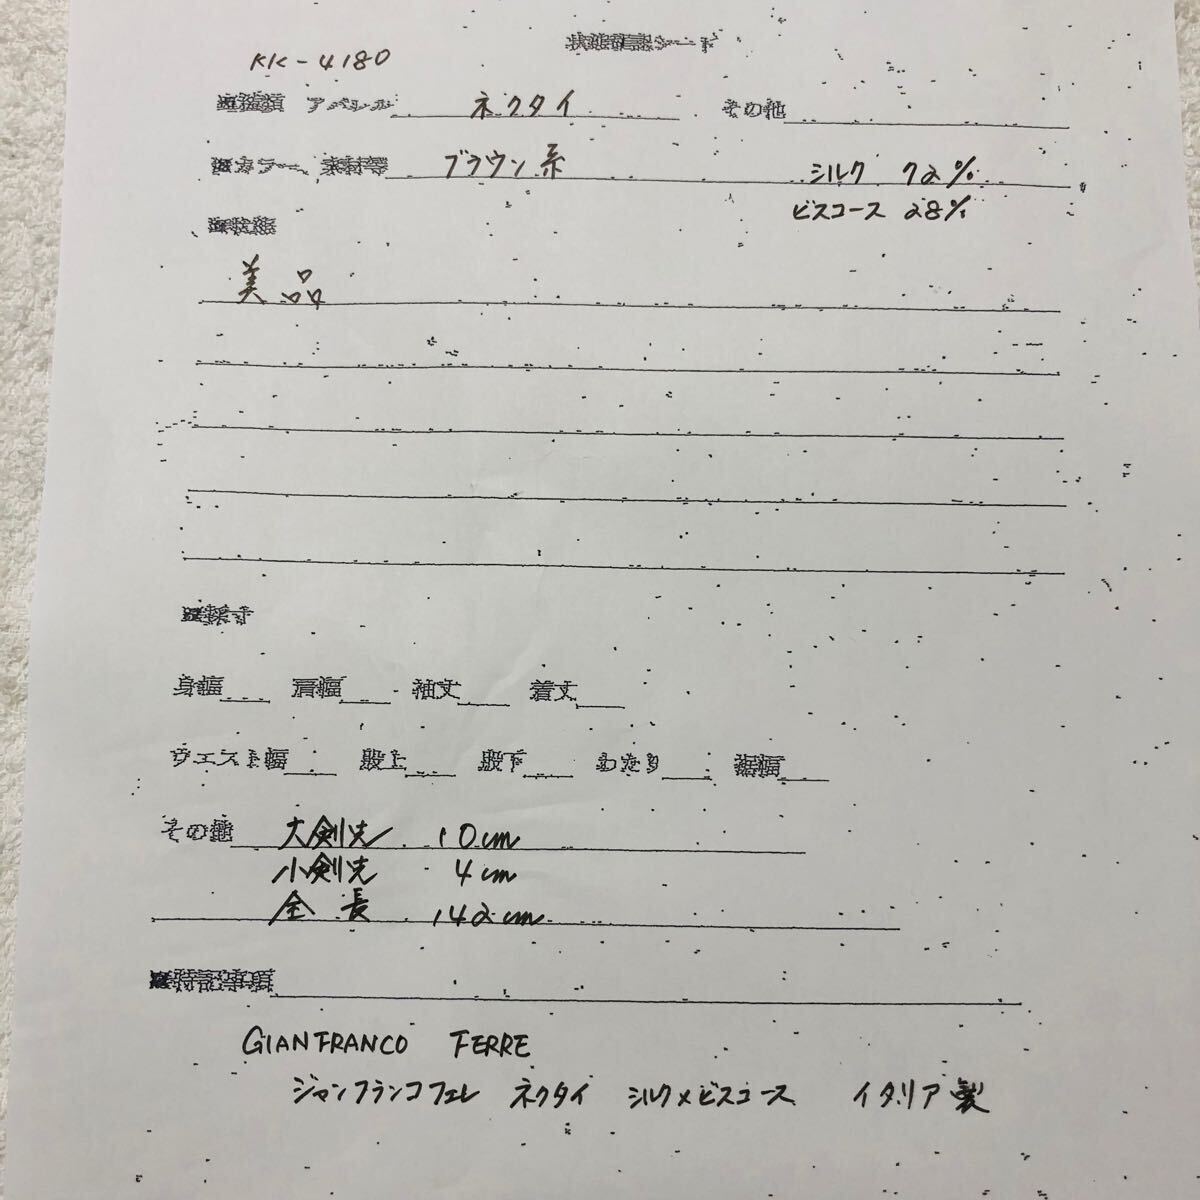 状態確認シート
KK-4180
種類 アパレル ネクタイ その他
カラー、素材等 ブラウン系 シルク 72%
ビスコース 28%
状態
美品
採寸
身幅 肩幅 袖丈 着丈
ウエスト幅 股上 股下 わたり 裾幅
その他 大剣先 10cm
小剣先 4cm
全長 142cm
特記事項
GIANFRANCO FERRE
ジャンフランコフェレ ネクタイ シルク×ビスコース イタリア製